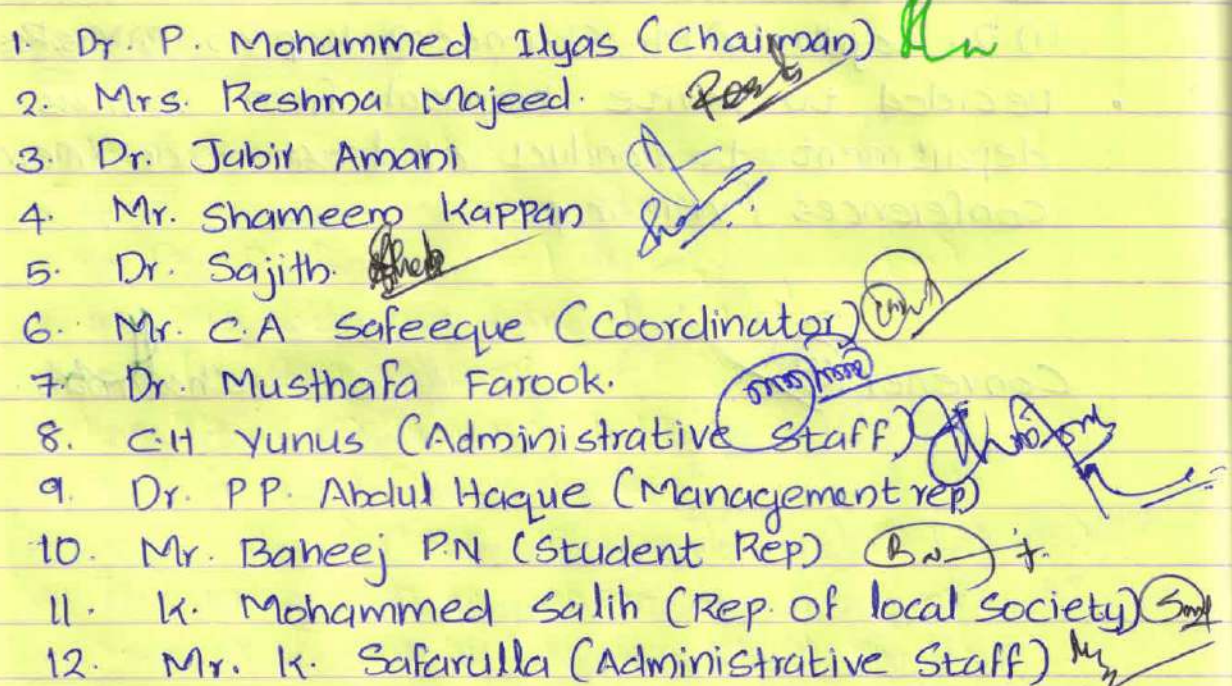 1. Dr. P. Mohammed Ilyas (Chairman)
2. Mrs. Reshma Majeed.
3. Dr. Jabir Amani
4. Mr. Shameem Kappan
5. Dr. Sajith.
6. Mr. C.A Safeeque (Coordinator)
7. Dr Musthafa Farook.
8. C.H Yunus (Administrative Staff)
9. Dr. P.P. Abdul Haque (Management rep)
10. Mr. Baheej P.N (Student Rep)
11. K. Mohammed Salih (Rep. of local society)
12. Mr. K. Safarulla (Administrative Staff)